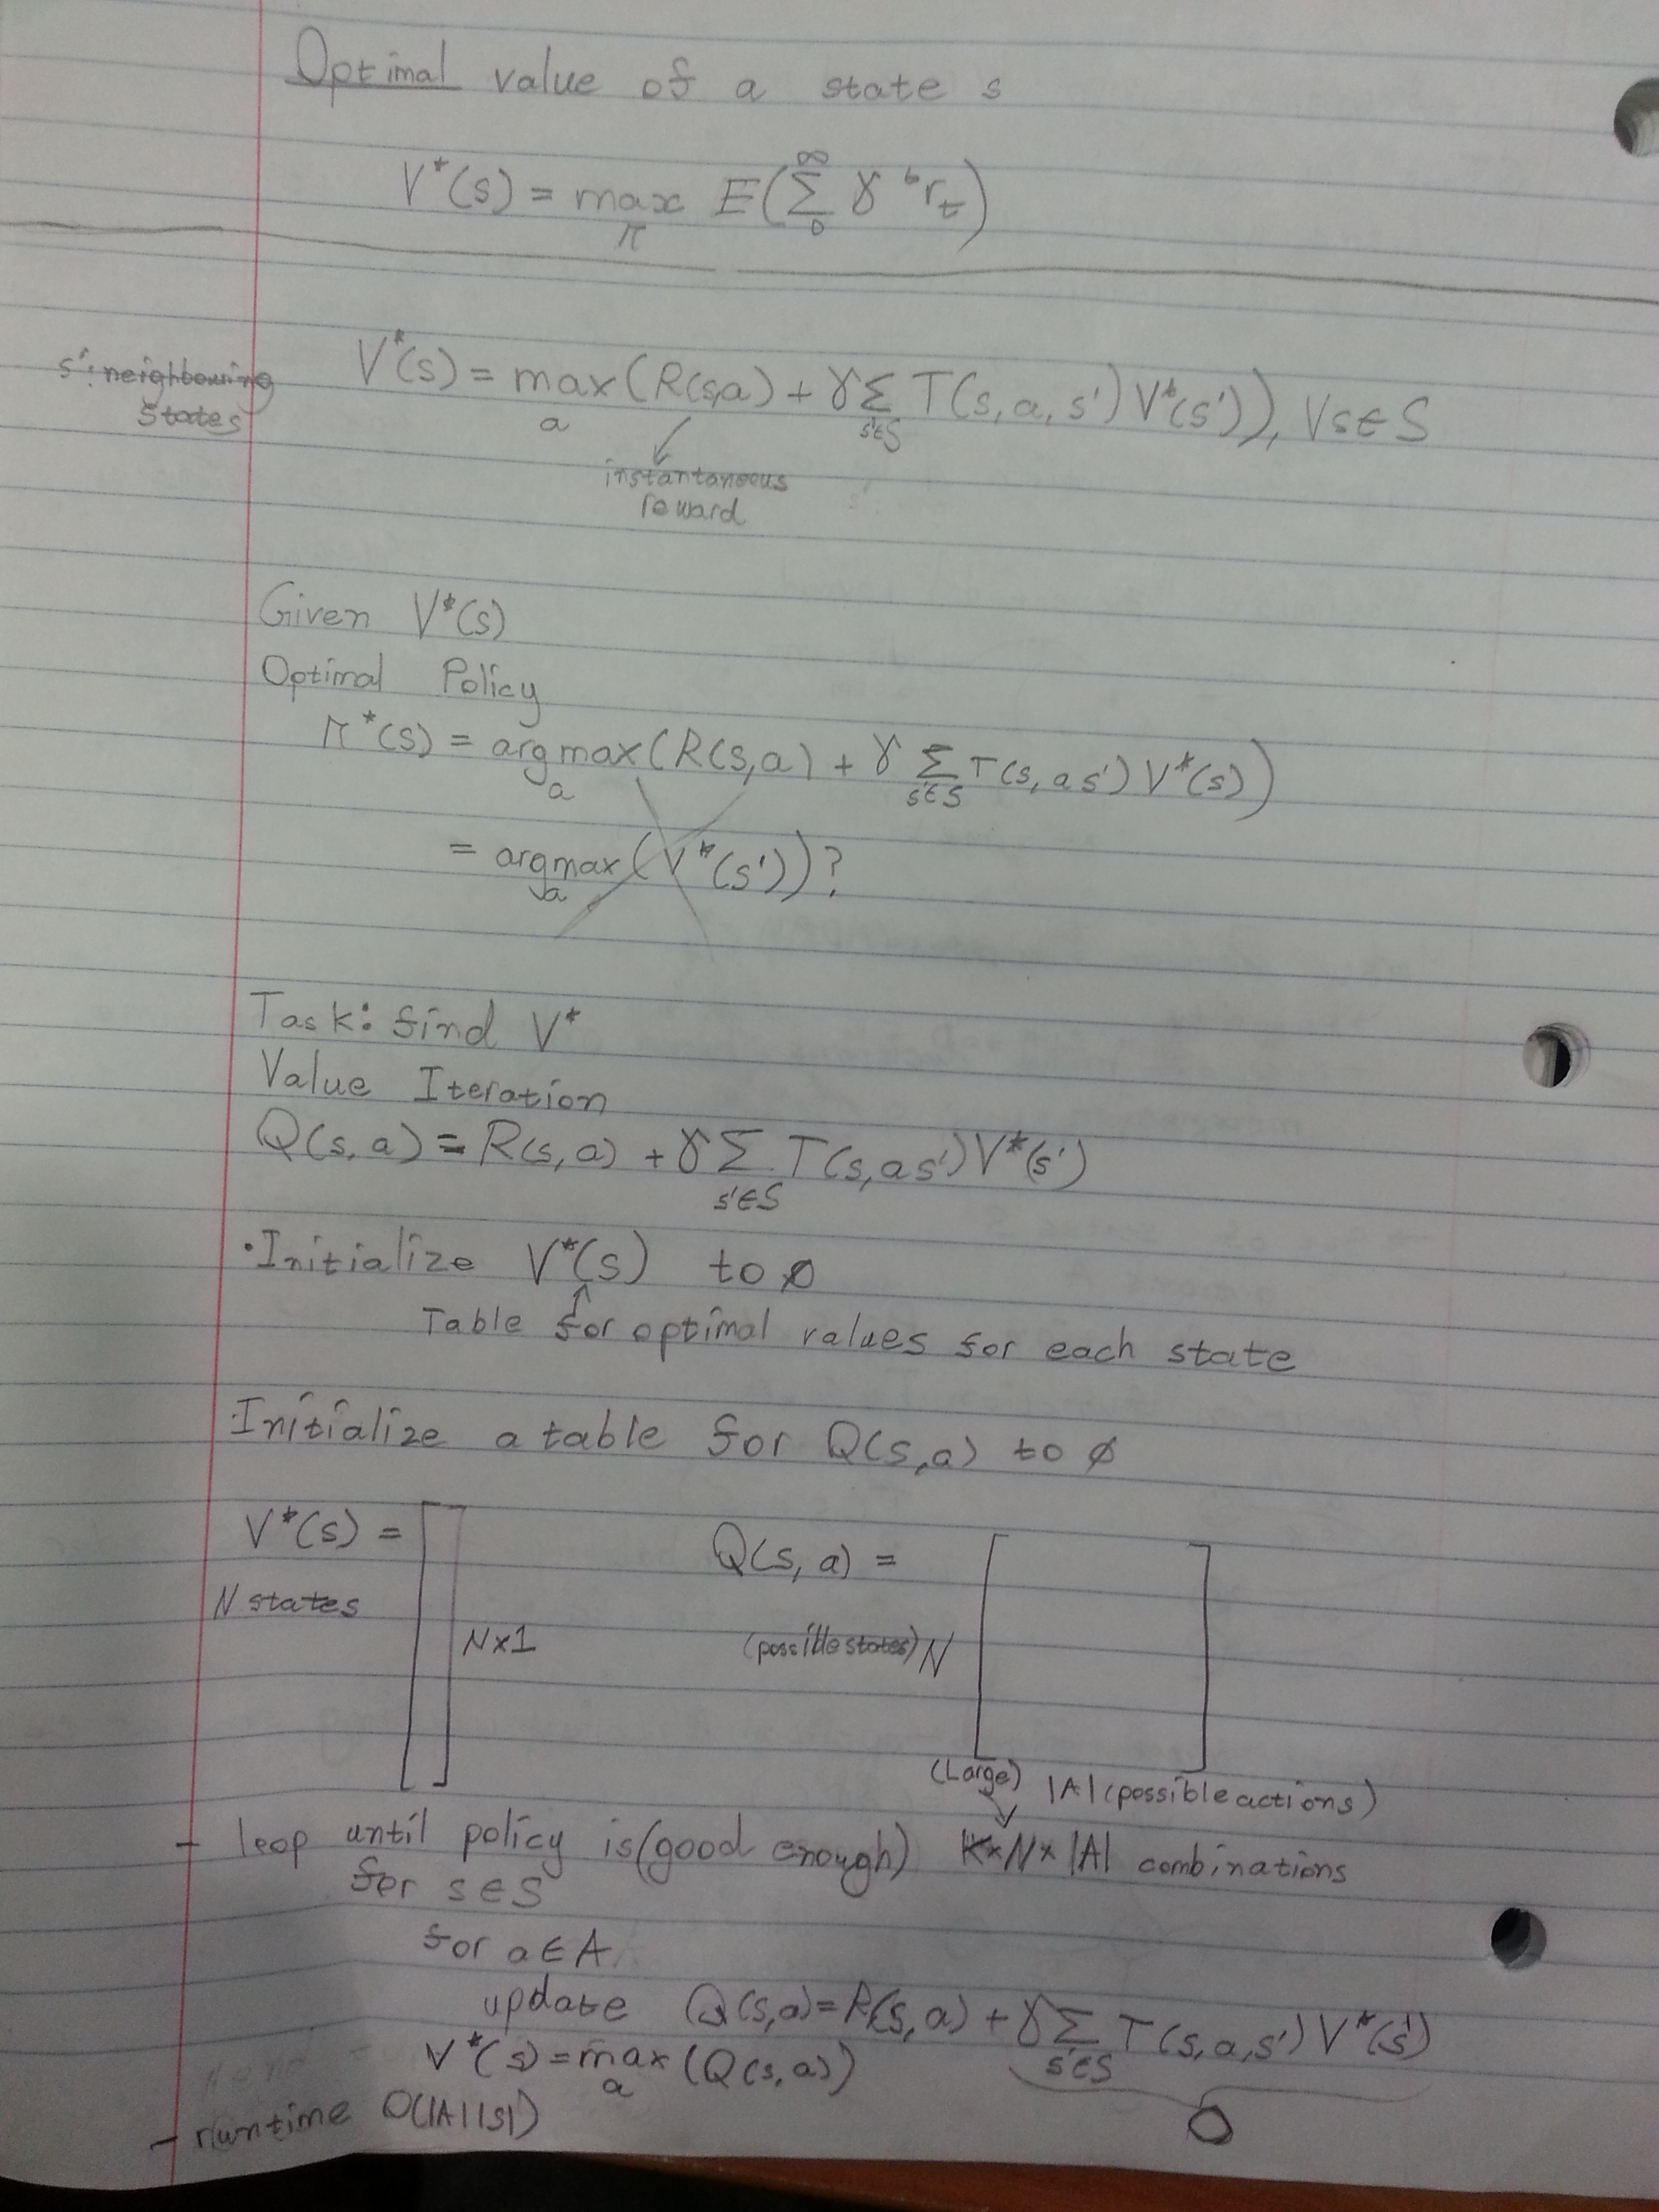 Optimal value of a state s
V*(s) = max E(∑ γ^t r_t)
π ∞ 0
V*(s) = max (R(s,a) + γ ∑ T(s, a, s') V*(s')), ∀s∈S
a s'∈S
s': neighbouring
states
instantaneous
reward
Given V*(s)
Optimal Policy
π*(s) = argmax (R(s,a) + γ ∑ T(s, a s') V*(s))
a s'∈S
= argmax (V*(s'))?
a
Task: find V*
Value Iteration
Q(s, a) = R(s, a) + γ ∑ T(s, a s') V*(s')
s'∈S
·Initialize V*(s) to 0
Table for optimal values for each state
·Initialize a table for Q(s,a) to 0
V*(s) = Q(s, a) =
N states
N×1 (possible states) N
(Large) |A| (possible actions)
- loop until policy is (good enough) K×N×|A| combinations
for s∈S
for a∈A
update Q(s,a) = R(s, a) + γ ∑ T(s, a, s') V*(s')
s'∈S
V*(s) = max (Q(s, a))
a
O
- runtime O(|A||S|)